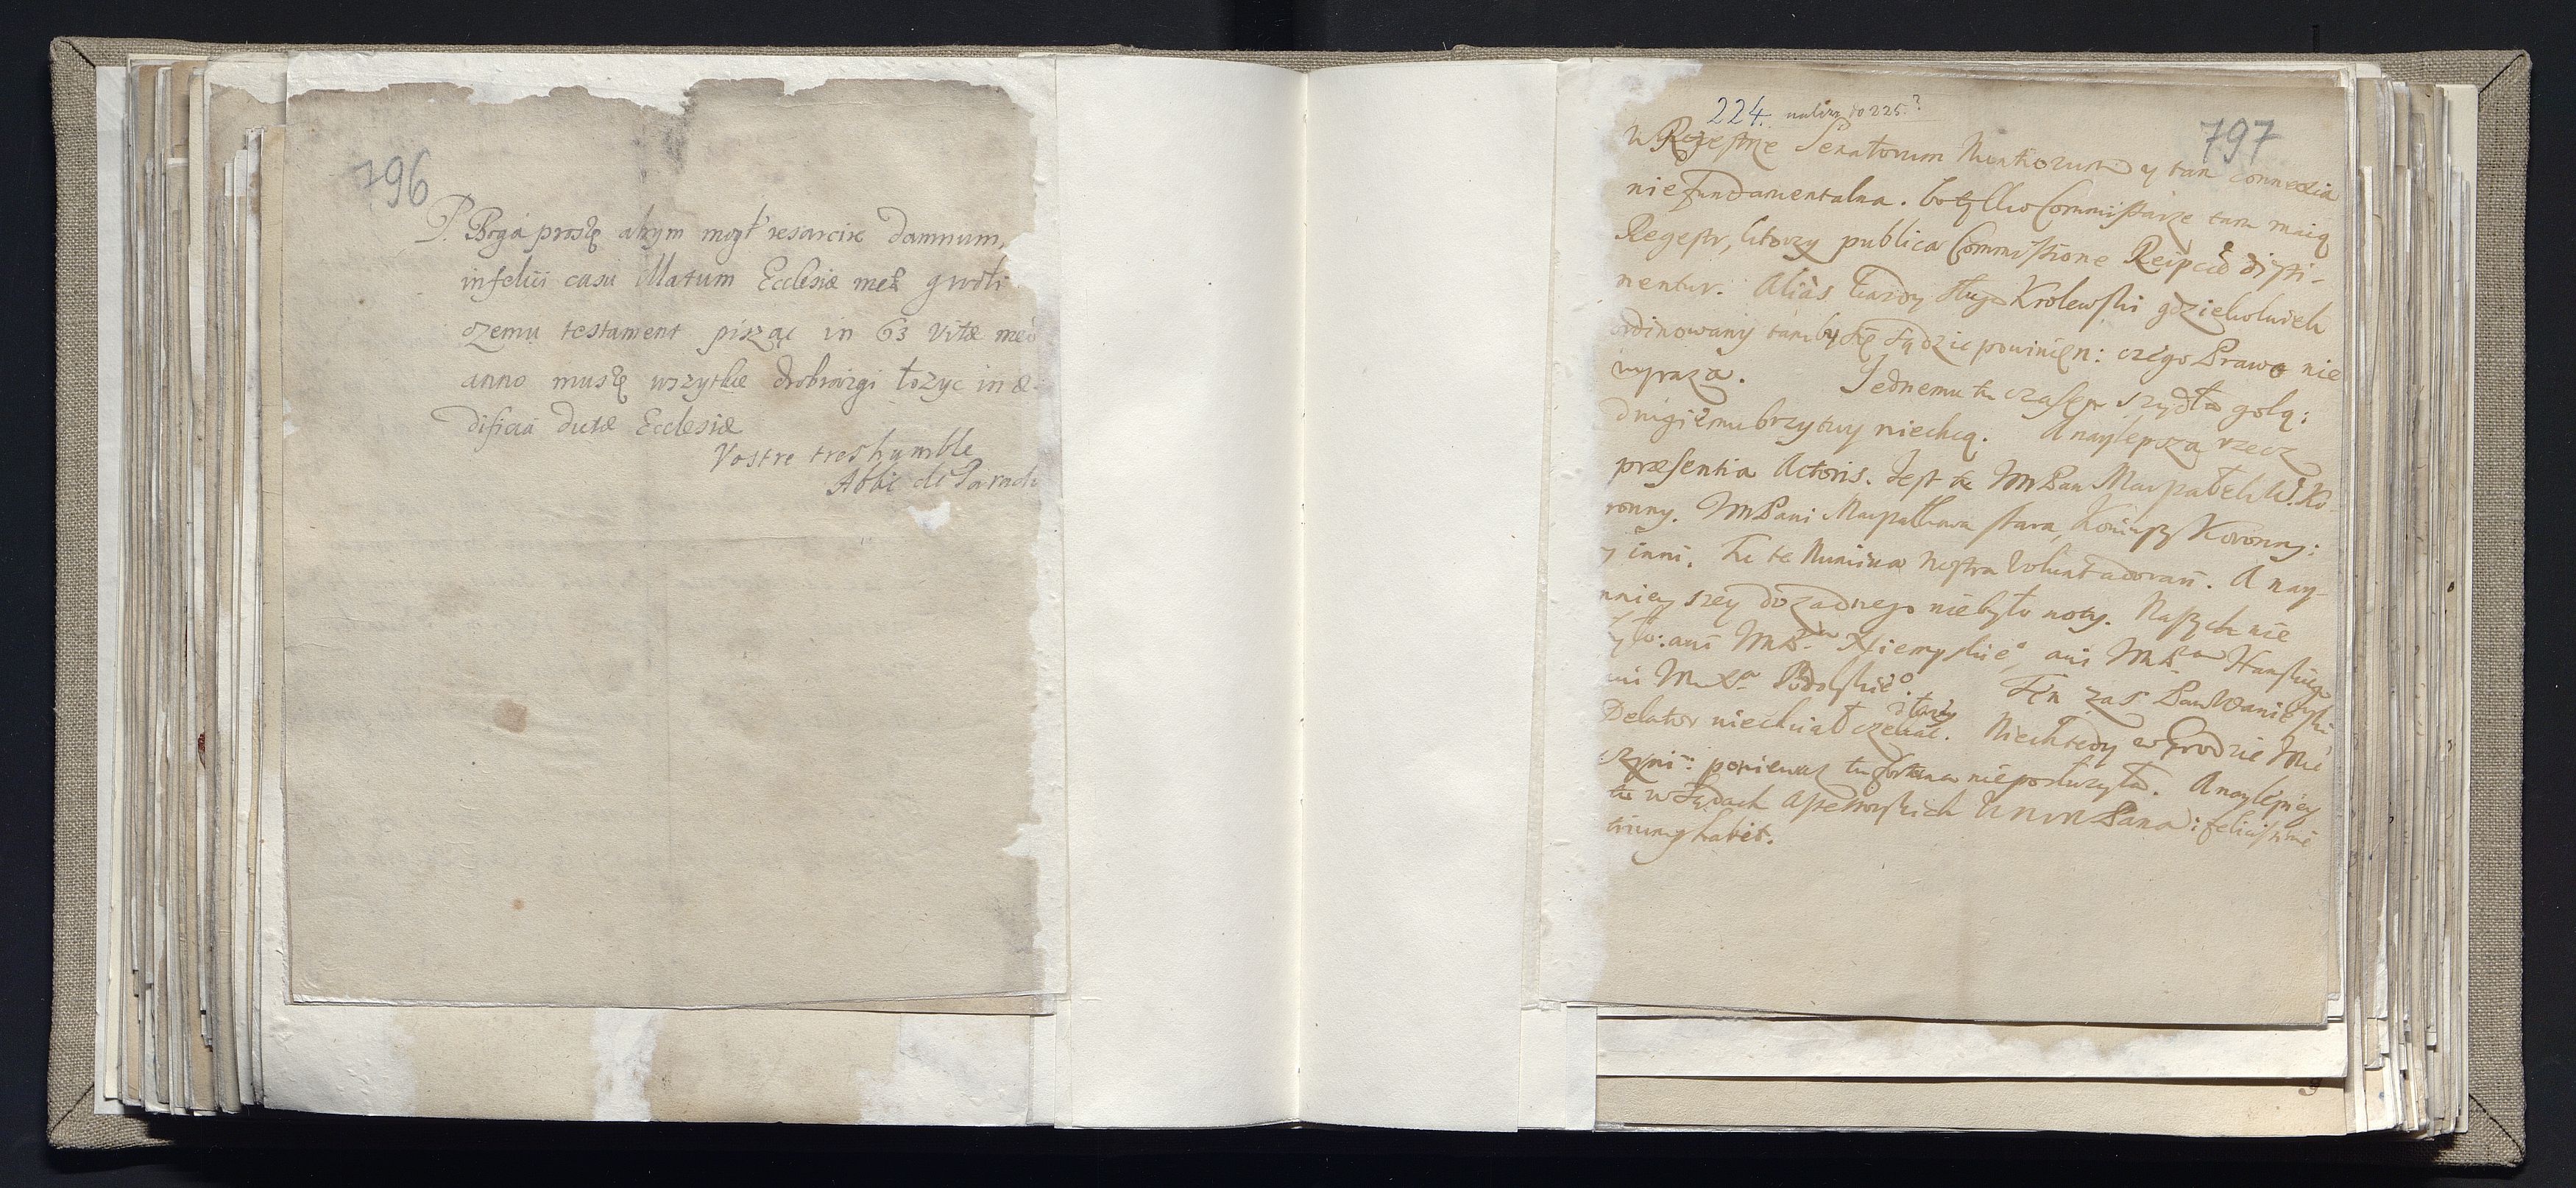 796
P. Boga proszę abym mogł resarcire damnum,
infelici casu illatum Ecclesiæ meæ gwoli
czemu testament pisząc in 63 vitæ meæ
anno muszę wszytkie drobiazgi łozyc in æ-
dificia dictæ Ecclesiæ
Vostre tres humble
Abbé de Parad
224. należy do 225?
797
w Regestrze Senatorum Nuntiorum y tam connexia
niefundamentalna. bo tylko Commissarze tam maią
Regestr, ktorzy publica Commissione Reipcæ disti-
nentur. Aliàs kazdy sługa Krolewski gdziekolwiek
ordinowany tamby się sądzic powinien: czego Prawo nie
wyraza. Jednemu tu czasem szydła golą:
drugiemu brzytwy niechcą. A naylepsza rzecz
præsentia Actoris. Jest tu JmPan Marszałek W. Ko
ronny. JmPani Marszałkowa stara, Koniuszy Koronny:
y inni. Tu te Numina nostra Volunt adorari. A nay-
mnieyszey do zadnego niebyło noty. Naszych nie
było: ani JmPa Rziemyskieo, ani JmPa Hanskiego
ani JmXa Podolskieo. Ten zas Pan Waniewski
Delator niechciał dłuzey czekac. Niech tedy w Grodzie
czyni: poniewaz tu fortuna nieposłuzyła. A naylepiey
to w Sądach Assessorskich JmPana: felicissime
triumphabit.